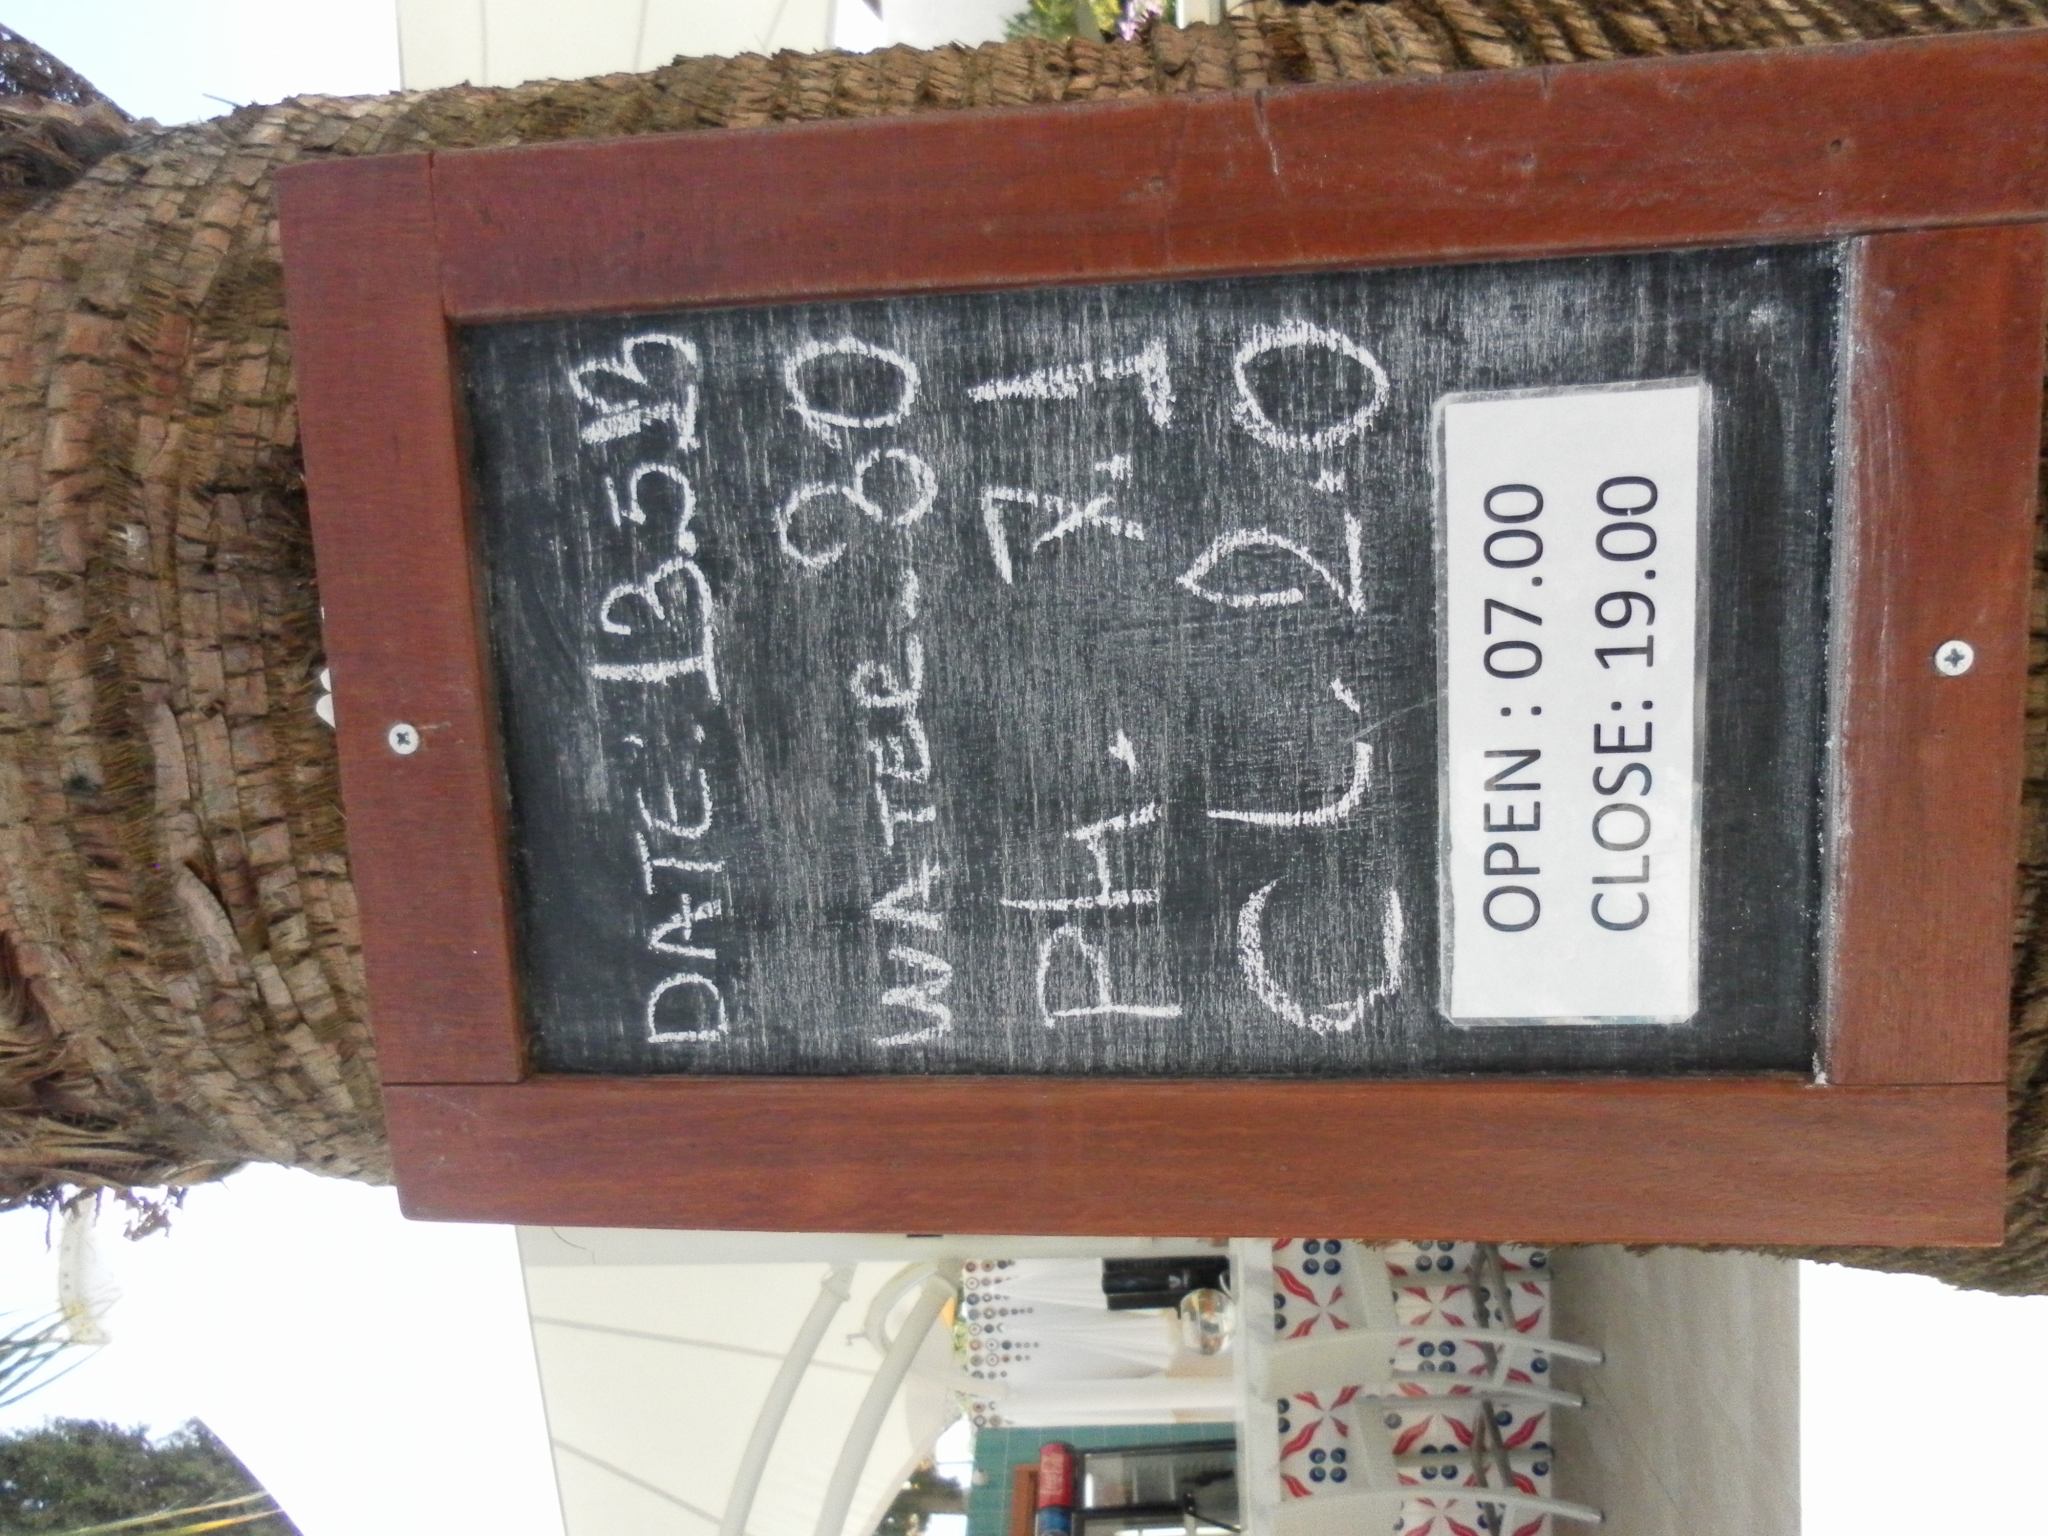 DATE: 13.5.13
WATER_ 30
PH. 7.1
CL. 2.0
OPEN : 07.00
CLOSE: 19.00